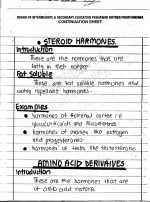 BOARD OF INTERMEDIATE & SECONDARY EDUCATION PESHAWAR KHYBER PAKHTUNKHWA
CONTINUATION SHEET
STEROID HORMONES.
Introduction
These are the hormones that are
fatty in their nature
Fat Soluble
These are fat soluble hormones and
water repellent hormones.
Examples
hormones of adrenal cortex i.e
glucocorticoids and
hormones of ovaries like estrogen
and progesterone
hormones of testis like testosterone
AMINO ACID DERIVATIVES
Introduction
These are the hormones that are
of amino acid nature